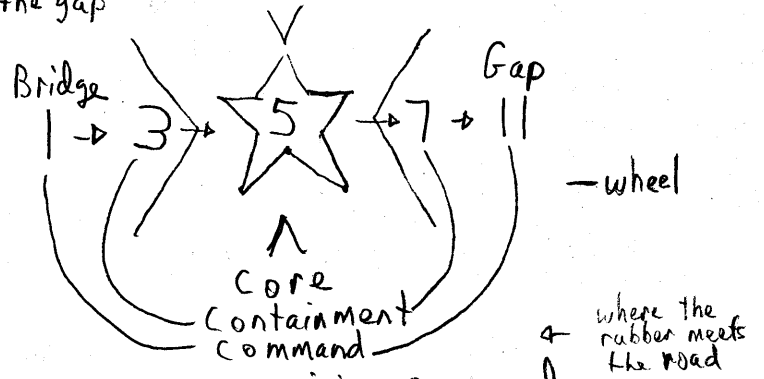 the gap
Bridge
Gap
1 → 3 → 5 → 7 → 11
— wheel
Core
Containment
Command
← where the
rubber meets
the road